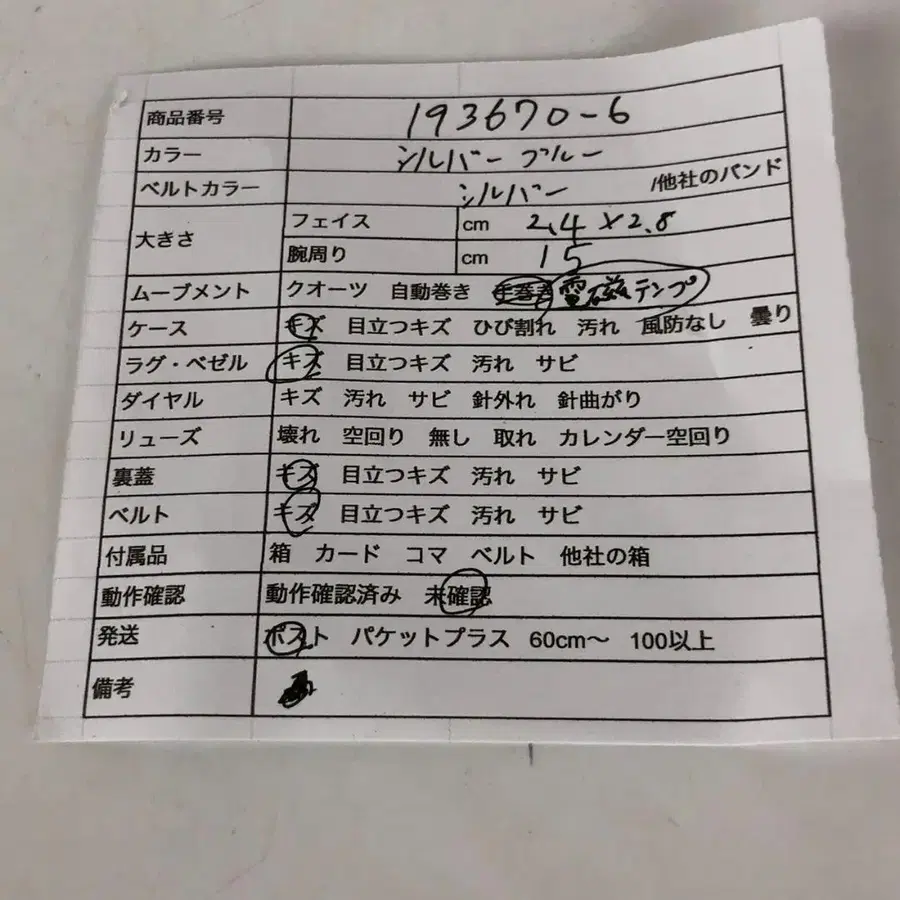 商品番号 193670-6
カラー シルバー ブルー
ベルトカラー シルバー /他社のバンド
大きさ フェイス cm 2.4×2.8
腕周り cm 15
ムーブメント クオーツ 自動巻き 手巻き 電磁テンプ
ケース キズ 目立つキズ ひび割れ 汚れ 風防なし 曇り
ラグ・ベゼル キズ 目立つキズ 汚れ サビ
ダイヤル キズ 汚れ サビ 針外れ 針曲がり
リューズ 壊れ 空回り 無し 取れ カレンダー空回り
裏蓋 キズ 目立つキズ 汚れ サビ
ベルト キズ 目立つキズ 汚れ サビ
付属品 箱 カード コマ ベルト 他社の箱
動作確認 動作確認済み 未確認
発送 ポスト パケットプラス 60cm〜 100以上
備考